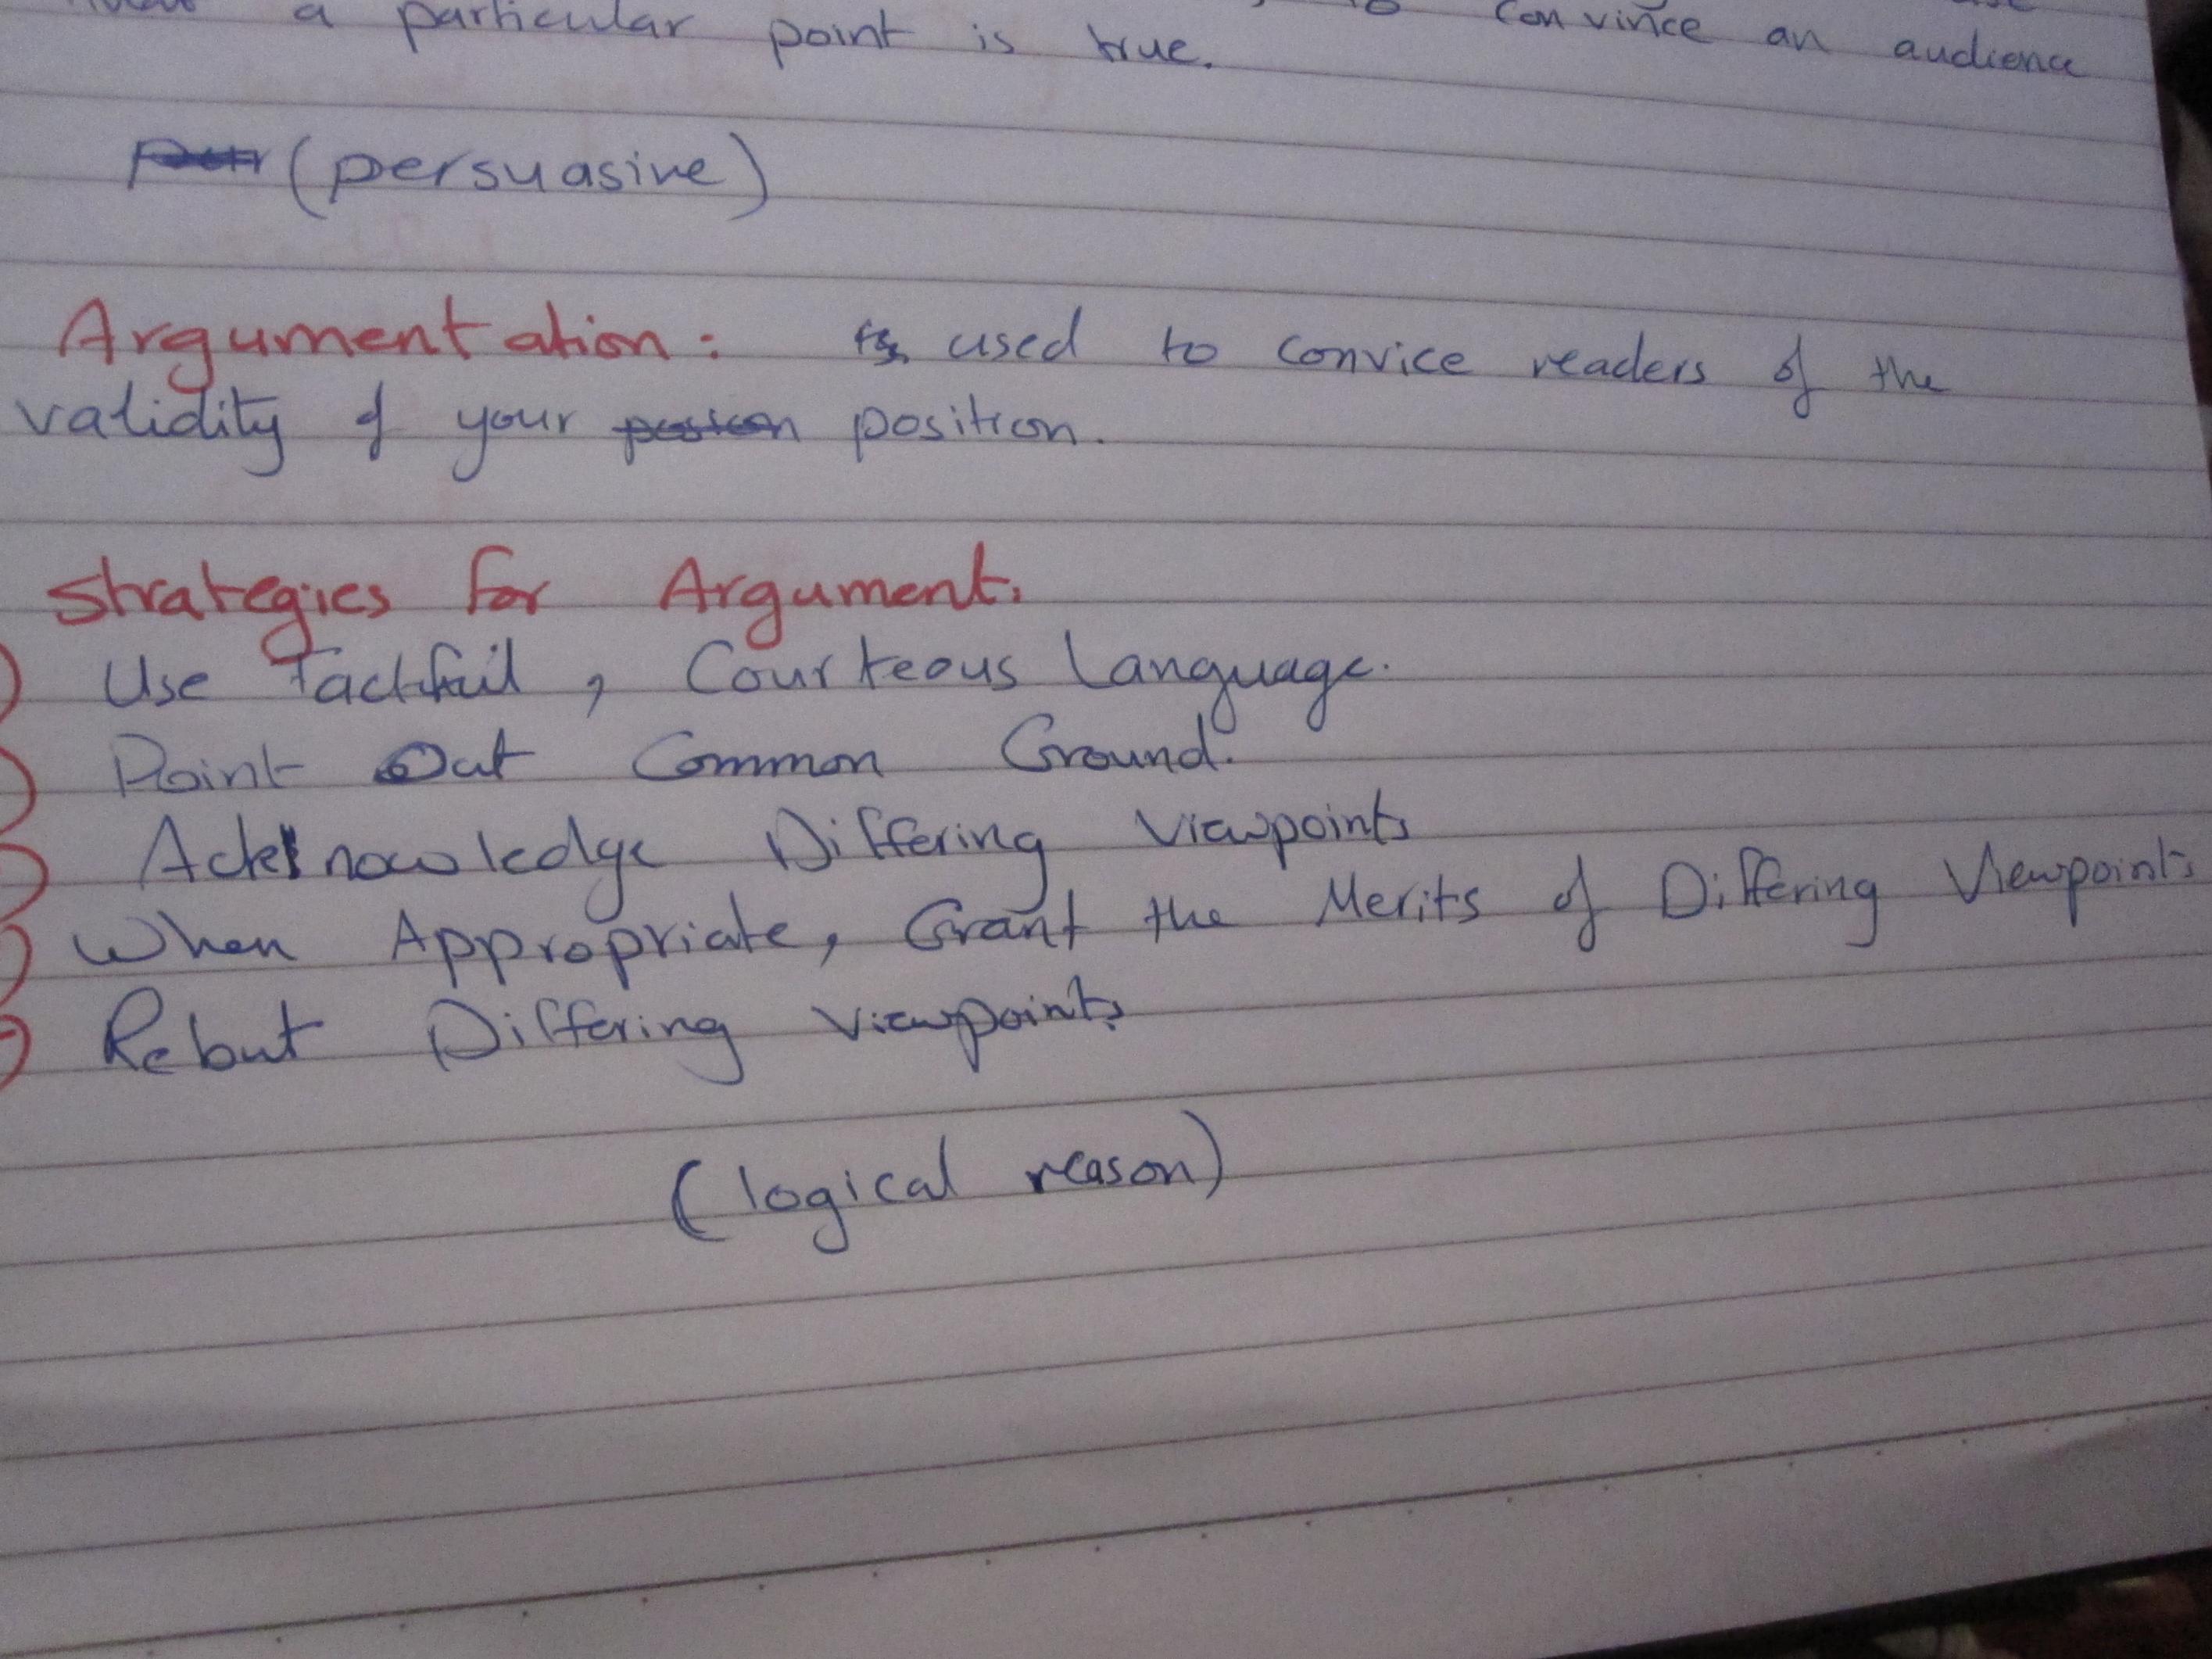 convince an audience
a particular point is true.
(persuasive)
Argumentation: is used to convice readers of the
validity of your position.
Strategies for Argument.
Use Tactfull, Courteous Language.
Point Out Common Ground.
Acknowledge Differing Viewpoints
When Appropriate, Grant the Merits of Differing Viewpoints
Rebut Differing Viewpoints
(logical reason)